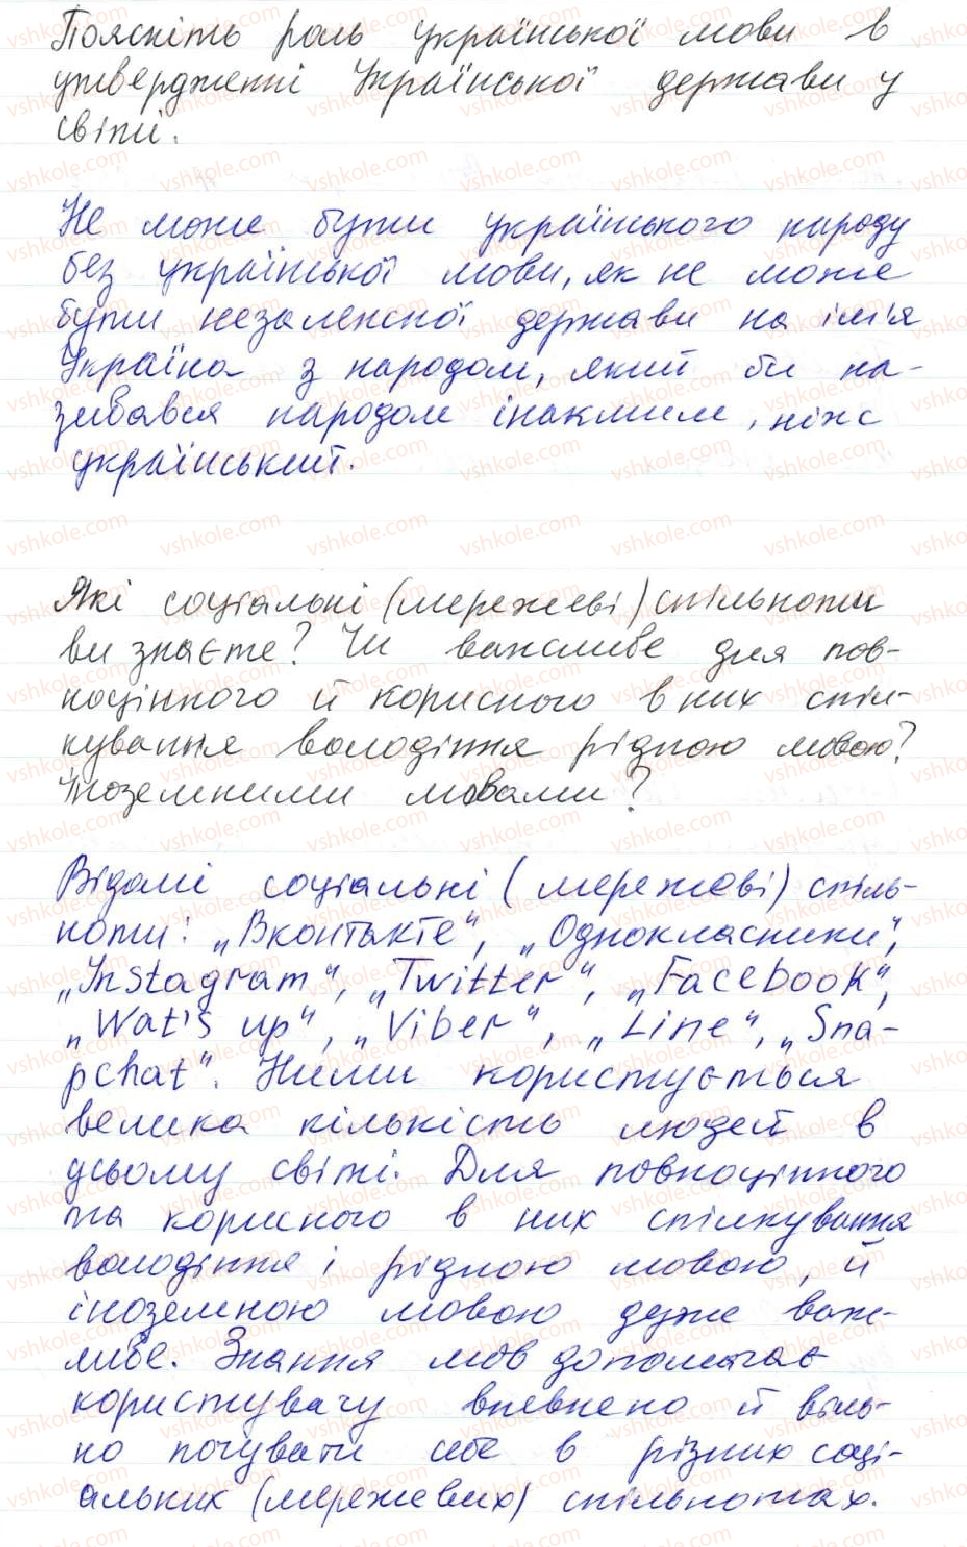 Поясніть роль української мови в
утвердженні Української держави у
світі.
Не може бути українського народу
без української мови, як не може
бути незалежної держави на ім'я
Україна з народом, який би на-
зивався народом інакшим, ніж
український.
Які соціальні (мережеві) спільноти
ви знаєте? Чи важливе для пов-
ноцінного й корисного в них спіл-
кування володіння рідною мовою?
Іноземними мовами?
Відомі соціальні (мережові) спіль-
ноти: „Вконтакте", „Однокласники",
„Instagram", „Twitter", „Facebook",
„Wat's up", „Viber", „Line", „Sna-
pchat". Ними користується
велика кількість людей в
усьому світі. Для повноцінного
та корисного в них спілкування
володіння і рідною мовою, й
іноземною мовою дуже важ-
ливе. Знання мов допомагає
користувачу впевнено й віль-
но почувати себе в різних соці-
альних (мережевих) спільнотах.